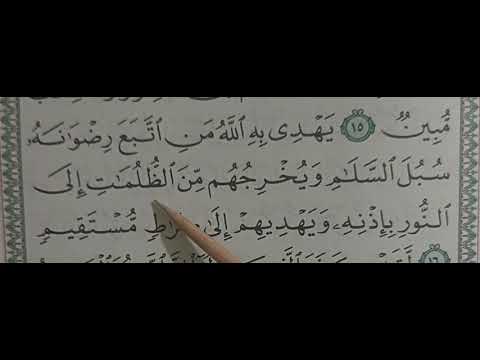 مُّبِينٌ ١٥ يَهْدِى بِهِ ٱللَّهُ مَنِ ٱتَّبَعَ رِضْوَٰنَهُۥ
سُبُلَ ٱلسَّلَٰمِ وَيُخْرِجُهُم مِّنَ ٱلظُّلُمَٰتِ إِلَى
ٱلنُّورِ بِإِذْنِهِۦ وَيَهْدِيهِمْ إِلَىٰ صِرَٰطٍ مُّسْتَقِيمٍ
١٦